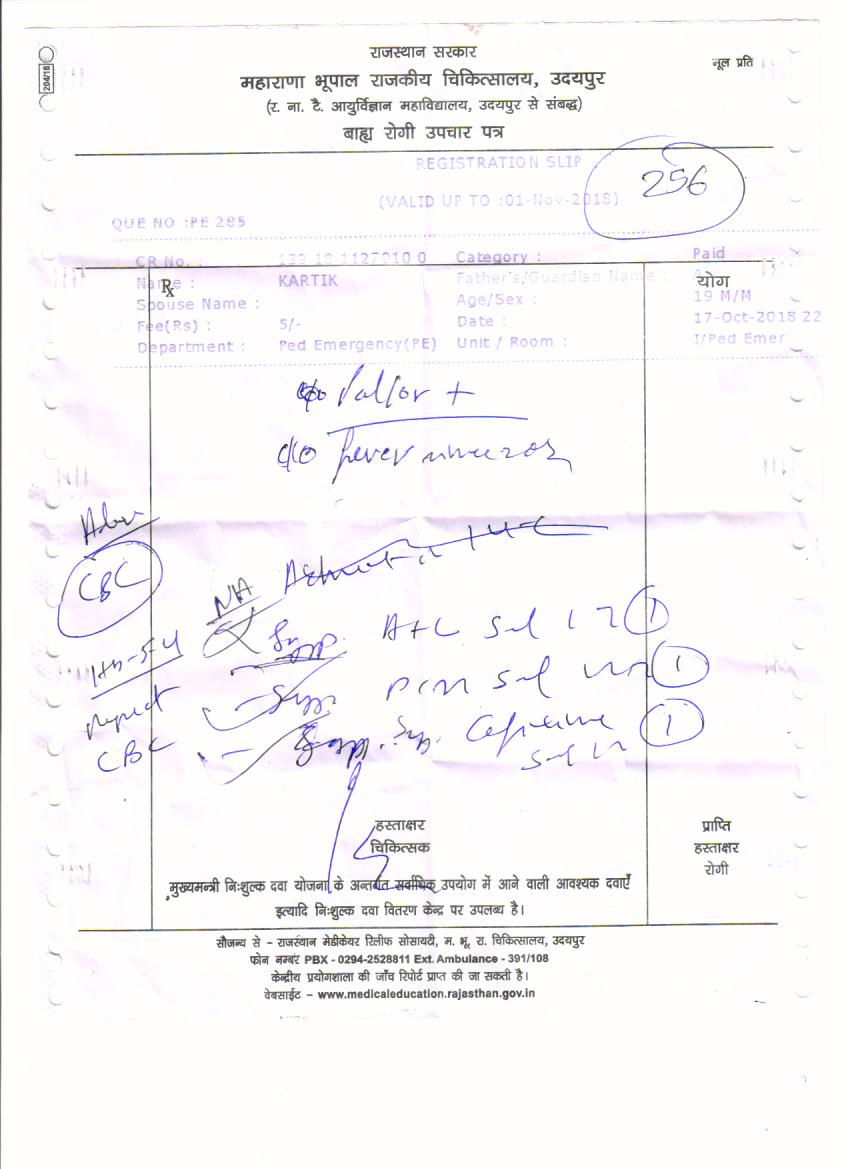 204/18
राजस्थान सरकार
मूल प्रति
महाराणा भूपाल राजकीय चिकित्सालय, उदयपुर
(र. ना. टै. आयुर्विज्ञान महाविद्यालय, उदयपुर से संबद्ध)
बाह्य रोगी उपचार पत्र
REGISTRATION SLIP
256
(VALID UP TO :01-Nov-2018)
QUE NO :PE 285
CR No. : Category : Paid
Name : KARTIK Father's/Guardian Name :
Rx योग
Spouse Name : Age/Sex : 19 M/M
Fee(Rs) : 5/- Date : 17-Oct-2018 22
Department : Ped Emergency(PE) Unit / Room : I/Ped Emer
c/o Pallor +
c/o fever since
Adv
CBC
NA
Syp. 5ml 1
Hb-5.4
Syp. PCM 5ml 1
repeat
CBC
Syp. 5ml 1
हस्ताक्षर
चिकित्सक
प्राप्ति
हस्ताक्षर
रोगी
मुख्यमन्त्री निःशुल्क दवा योजना के अन्तर्गत सर्वाधिक उपयोग में आने वाली आवश्यक दवाएँ
इत्यादि निःशुल्क दवा वितरण केन्द्र पर उपलब्ध है।
सौजन्य से – राजस्थान मेडीकेयर रिलीफ सोसायटी, म. भू. रा. चिकित्सालय, उदयपुर
फोन नम्बर PBX - 0294-2528811 Ext. Ambulance - 391/108
केन्द्रीय प्रयोगशाला की जाँच रिपोर्ट प्राप्त की जा सकती है।
वेबसाईट – www.medicaleducation.rajasthan.gov.in